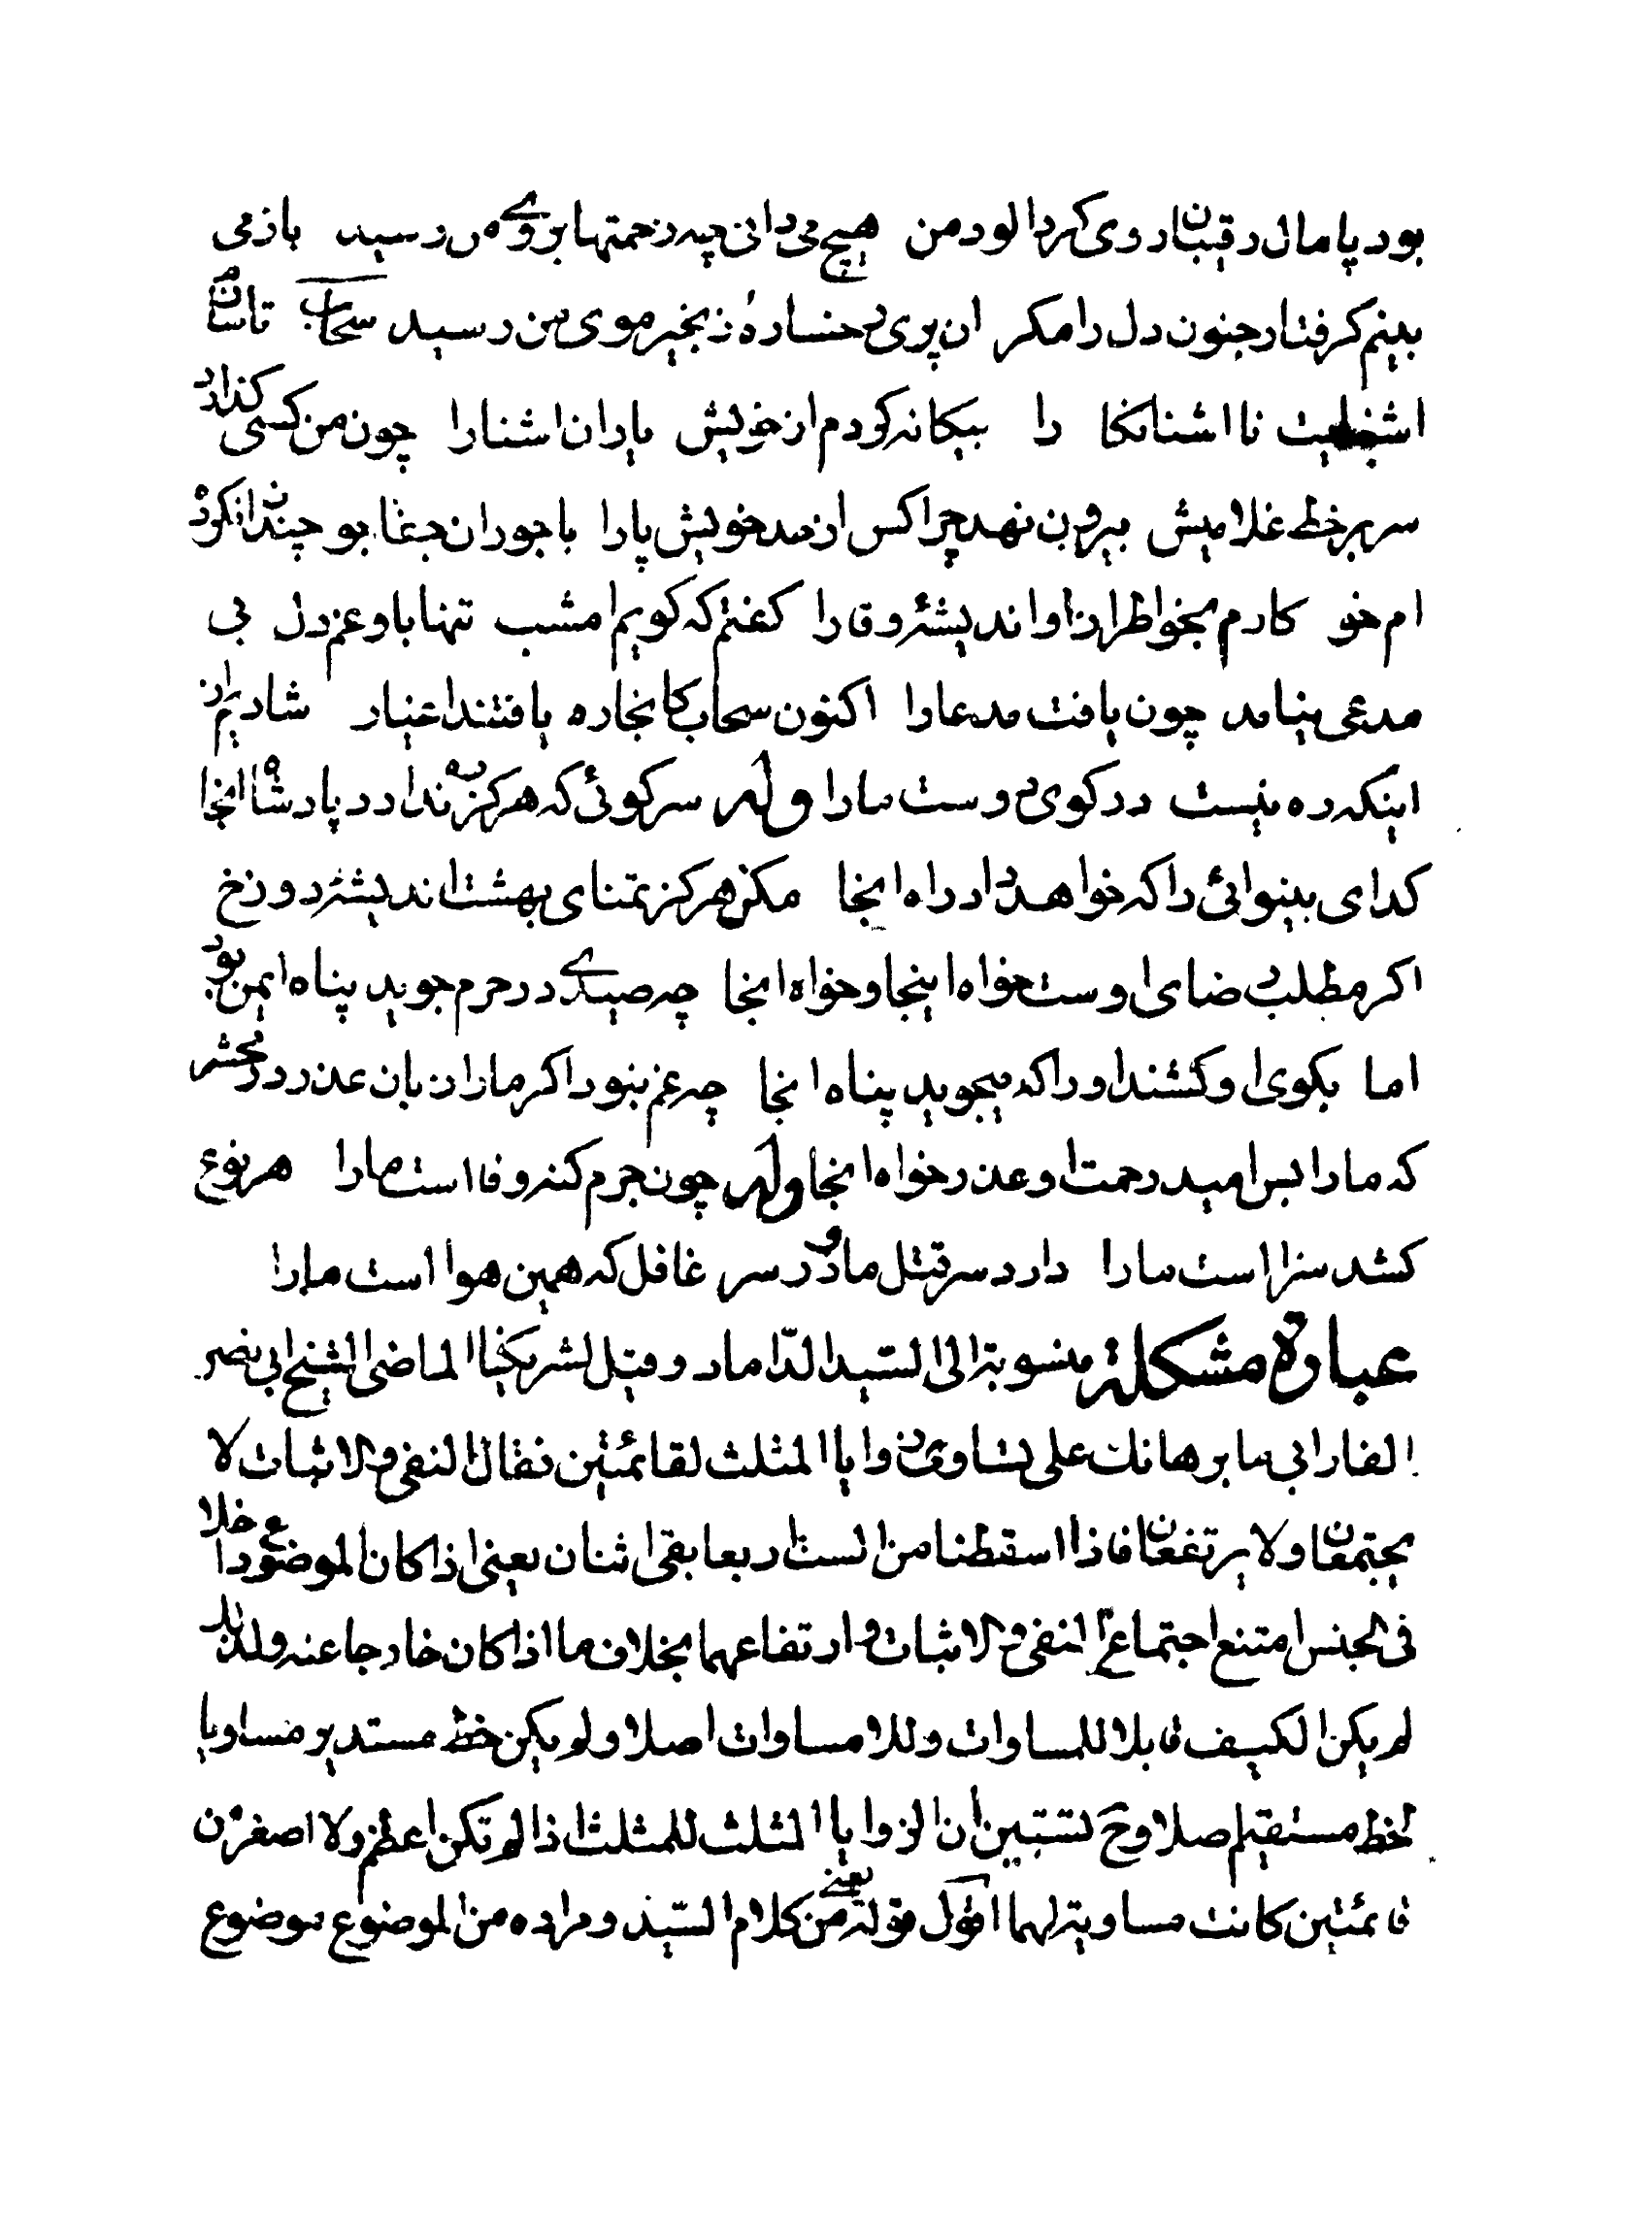 بود پامال رقیبان روی کرد الود من هیچ می دانی چه زحمتها بروی من رسید باز می
بینم کرفتار جنون دل را مکر ان پری رخساره زنجیر موی من رسید سحاب تا
اشنا کانرا بیکانه کردم از خویش یاران اشنا را چون من کسی کذارد
سر بر خط غلامیش بیرون نهد چرا کس از حد خویش پا را با جور ان جفا جو چندان کرده
ام خو کارم بخواطر از او اندیشهٔ وفا را کفتم که کویم امشب تنها با و غم دل بی
مدعی نیامد چون یافت مدعا را اکنون سحاب کانجا ره یافتند اغیار شادیم از
اینکه ره نیست در کوی دوست ما را وله سر کوئی که هرکز ره ندارد پادشاه انجا
کدای بینوائی را که خواهد داد راه انجا مکن هرکز تمنای بهشت اندیشهٔ دوزخ
اکر مطلب رضای اوست خواه اینجا و خواه انجا چه صیدی در حرم جوید پناه ایمن بود
اما بکوی او کشند او را که میجوید پناه انجا چه غم نبود اکر ما را زبان عذر در محشر
که ما را بس امید رحمت او عذر خواه انجا وله چون جرم کنه وفا است ما را هر نوع
کشد سزا است ما را دارد سر قتل ما و در سر غافل که همین هوا است ما را
عبارة مشکلة منسوبة الی السید الداماد و قیل لشریکنا الماضی الشیخ ابی نصر
الفارابی ما برهانك علی تساوی زوایا المثلث لقائمتین فقال النفی و الاثبات لا
یجتمعان و لا یرتفعان فاذا اسقطنا من الست اربعا بقی اثنان یعنی اذا کان الموضوع داخلا
فی الجنس امتنع اجتماع النفی و الاثبات و ارتفاعهما بخلاف ما اذا کان خارجا عنه و لذلك
لم یکن الکیف قابلا للمساوات و للامساوات اصلا و لم یکن خط مستدیر مساویا
لخط مستقیم اصلا و ح تستبین ان الزوایا الثلث للمثلث اذا لم تکن اعظم و لا اصغر من
قائمتین کانت مساویة لهما اقول قوله یعنی من کلام السید و مراده من الموضوع موضوع